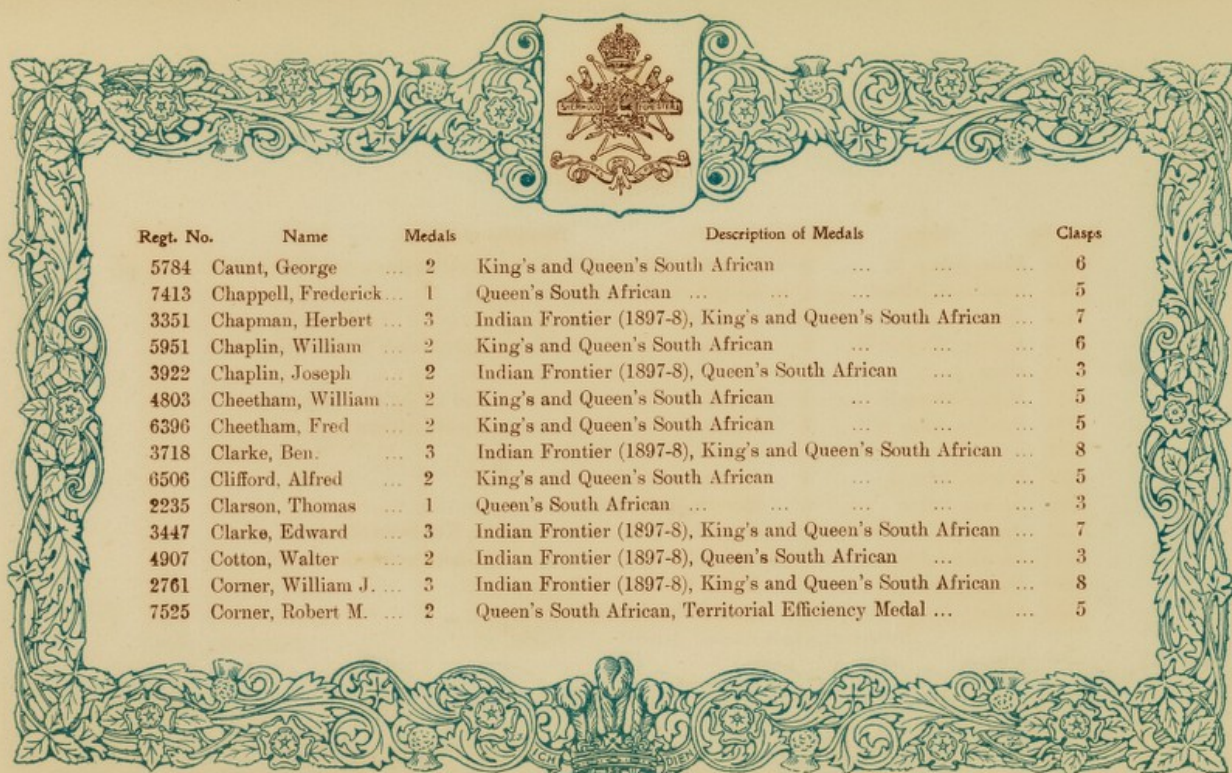 SHERWOOD FORESTERS
Regt. No. Name Medals Description of Medals Clasps
5784 Caunt, George ... 2 King's and Queen's South African ... ... ... 6
7413 Chappell, Frederick ... 1 Queen's South African ... ... ... ... ... 5
3351 Chapman, Herbert ... 3 Indian Frontier (1897-8), King's and Queen's South African ... 7
5951 Chaplin, William ... 2 King's and Queen's South African ... ... ... 6
3922 Chaplin, Joseph ... 2 Indian Frontier (1897-8), Queen's South African ... ... 3
4803 Cheetham, William ... 2 King's and Queen's South African ... ... ... 5
6396 Cheetham, Fred ... 2 King's and Queen's South African ... ... ... 5
3718 Clarke, Ben. ... 3 Indian Frontier (1897-8), King's and Queen's South African ... 8
6506 Clifford, Alfred ... 2 King's and Queen's South African ... ... ... 5
2235 Clarson, Thomas ... 1 Queen's South African ... ... ... ... ... 3
3447 Clarke, Edward ... 3 Indian Frontier (1897-8), King's and Queen's South African ... 7
4907 Cotton, Walter ... 2 Indian Frontier (1897-8), Queen's South African ... ... 3
2761 Corner, William J. ... 3 Indian Frontier (1897-8), King's and Queen's South African ... 8
7525 Corner, Robert M. ... 2 Queen's South African, Territorial Efficiency Medal ... ... 5
ICH DIEN